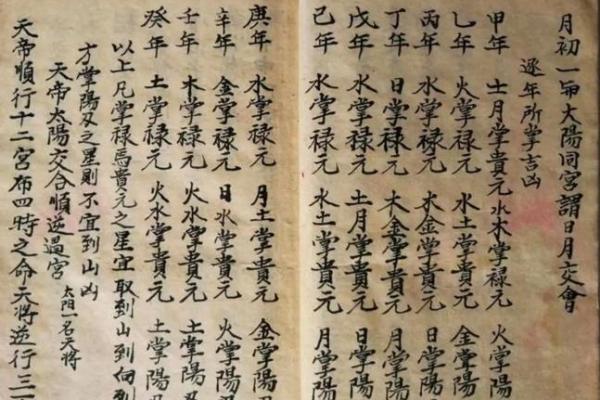 月初一大陽同宮謂日月交會
逐年所掌吉凶
甲年 土月掌貴元 水木掌禄元 火掌陽
乙年 火掌禄元 水土掌貴元 金掌陽
丙年 水掌禄元 木金掌貴元 日掌陽
丁年 日掌禄元 木金掌貴元 月掌陽
戊年 水掌禄元 土月掌貴元 日掌陽
己年 水掌禄元 水土掌貴元 月掌陽
庚年 水掌禄元 月土掌貴元 金掌陽
辛年 金掌禄元 日水掌貴元 火掌陽
壬年 木掌禄元 火水掌貴元 土掌陽
癸年 土掌禄元 火水掌貴元 土掌陽
以上凡掌禄馬貴元之星宜取到山到向到
方掌陽刃之星則不宜到山凶
天帝太陽交合順逆過宮 太陽一名天将
天帝順行十二宮布四時之命天将逆行三